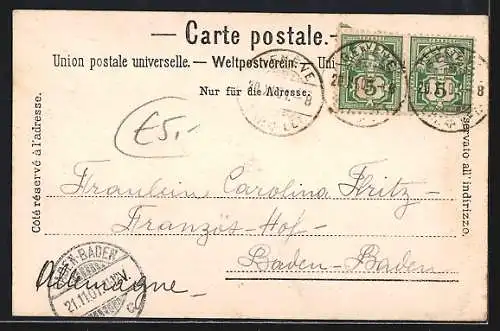 Carte postale.
Union postale universelle. — Weltpostverein. Uni
Nur für die Adresse.
Côté réservé à l'adresse.
servato all' indirizzo.
GENÈVE
5
5
£5.-
Fräulein Carolina Fritz-
Französ-Hof-
Baden-Baden
Allemagne-
BADEN-BADEN
21.11.01